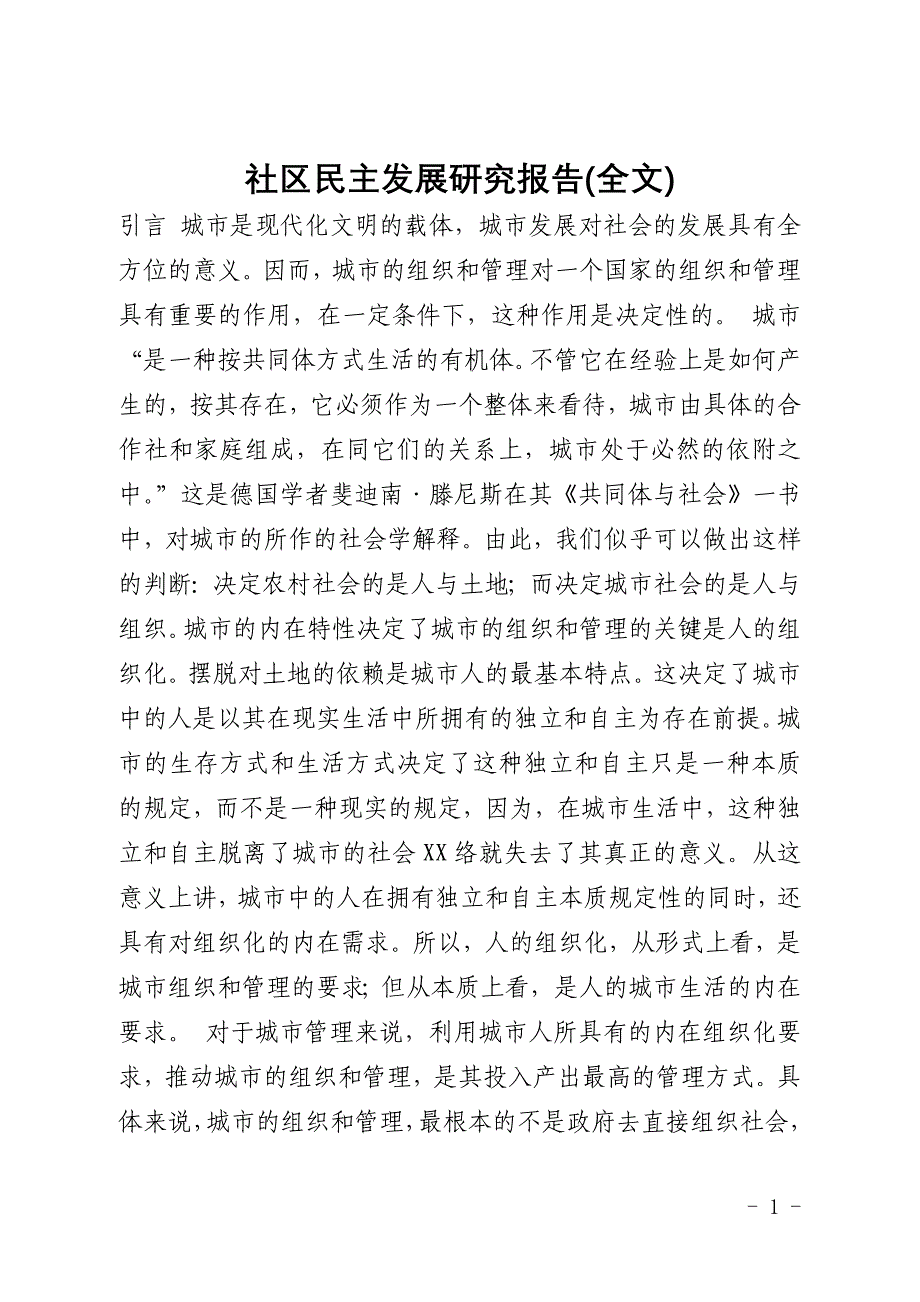 社区民主发展研究报告(全文)
引言 城市是现代化文明的载体，城市发展对社会的发展具有全
方位的意义。因而，城市的组织和管理对一个国家的组织和管理
具有重要的作用，在一定条件下，这种作用是决定性的。 城市
“是一种按共同体方式生活的有机体。不管它在经验上是如何产
生的，按其存在，它必须作为一个整体来看待，城市由具体的合
作社和家庭组成，在同它们的关系上，城市处于必然的依附之
中。”这是德国学者斐迪南·滕尼斯在其《共同体与社会》一书
中，对城市的所作的社会学解释。由此，我们似乎可以做出这样
的判断：决定农村社会的是人与土地；而决定城市社会的是人与
组织。城市的内在特性决定了城市的组织和管理的关键是人的组
织化。摆脱对土地的依赖是城市人的最基本特点。这决定了城市
中的人是以其在现实生活中所拥有的独立和自主为存在前提。城
市的生存方式和生活方式决定了这种独立和自主只是一种本质
的规定，而不是一种现实的规定，因为，在城市生活中，这种独
立和自主脱离了城市的社会XX络就失去了其真正的意义。从这
意义上讲，城市中的人在拥有独立和自主本质规定性的同时，还
具有对组织化的内在需求。所以，人的组织化，从形式上看，是
城市组织和管理的要求；但从本质上看，是人的城市生活的内在
要求。 对于城市管理来说，利用城市人所具有的内在组织化要
求，推动城市的组织和管理，是其投入产出最高的管理方式。具
体来说，城市的组织和管理，最根本的不是政府去直接组织社会，
- 1 -